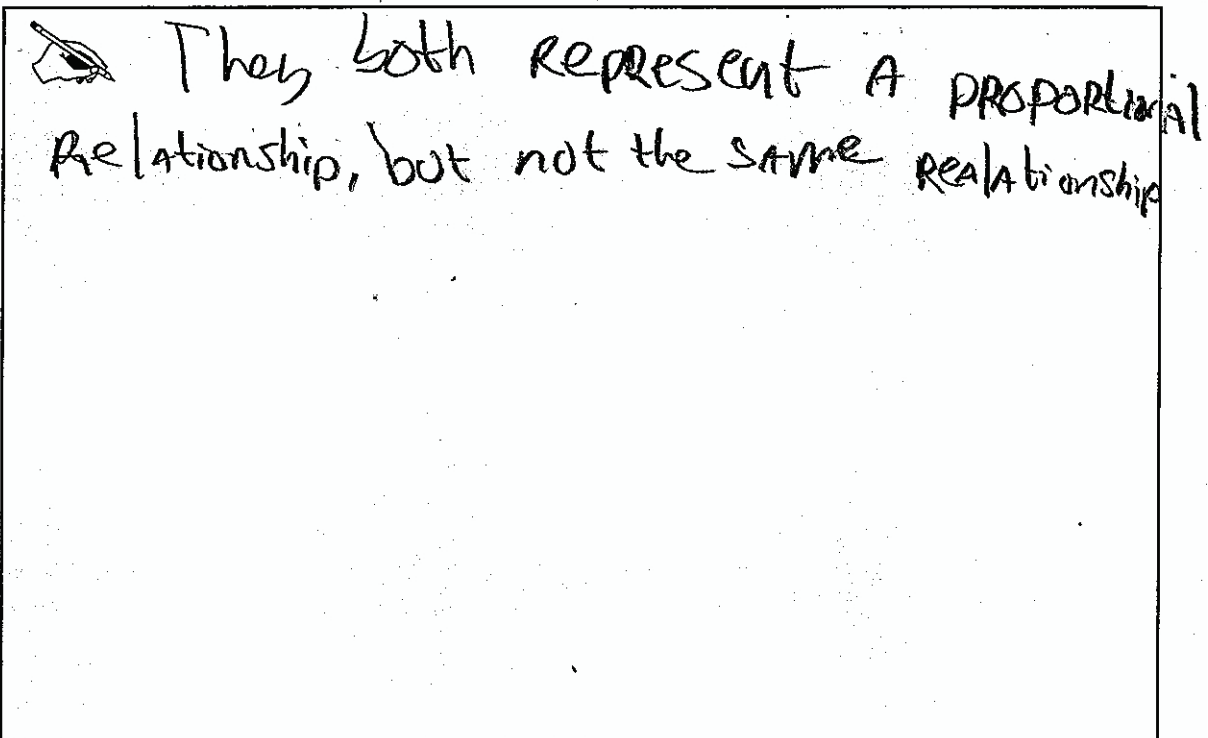 They both represent A proportional
Relationship, but not the same realationship